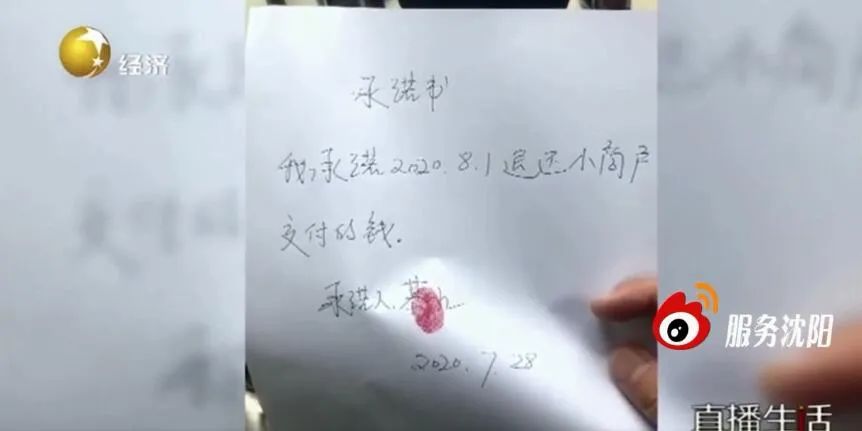 经济
承诺书
我承诺2020.8.1退还小商户
交付的钱.
承诺人.
2020.7.28
服务沈阳
直播生活